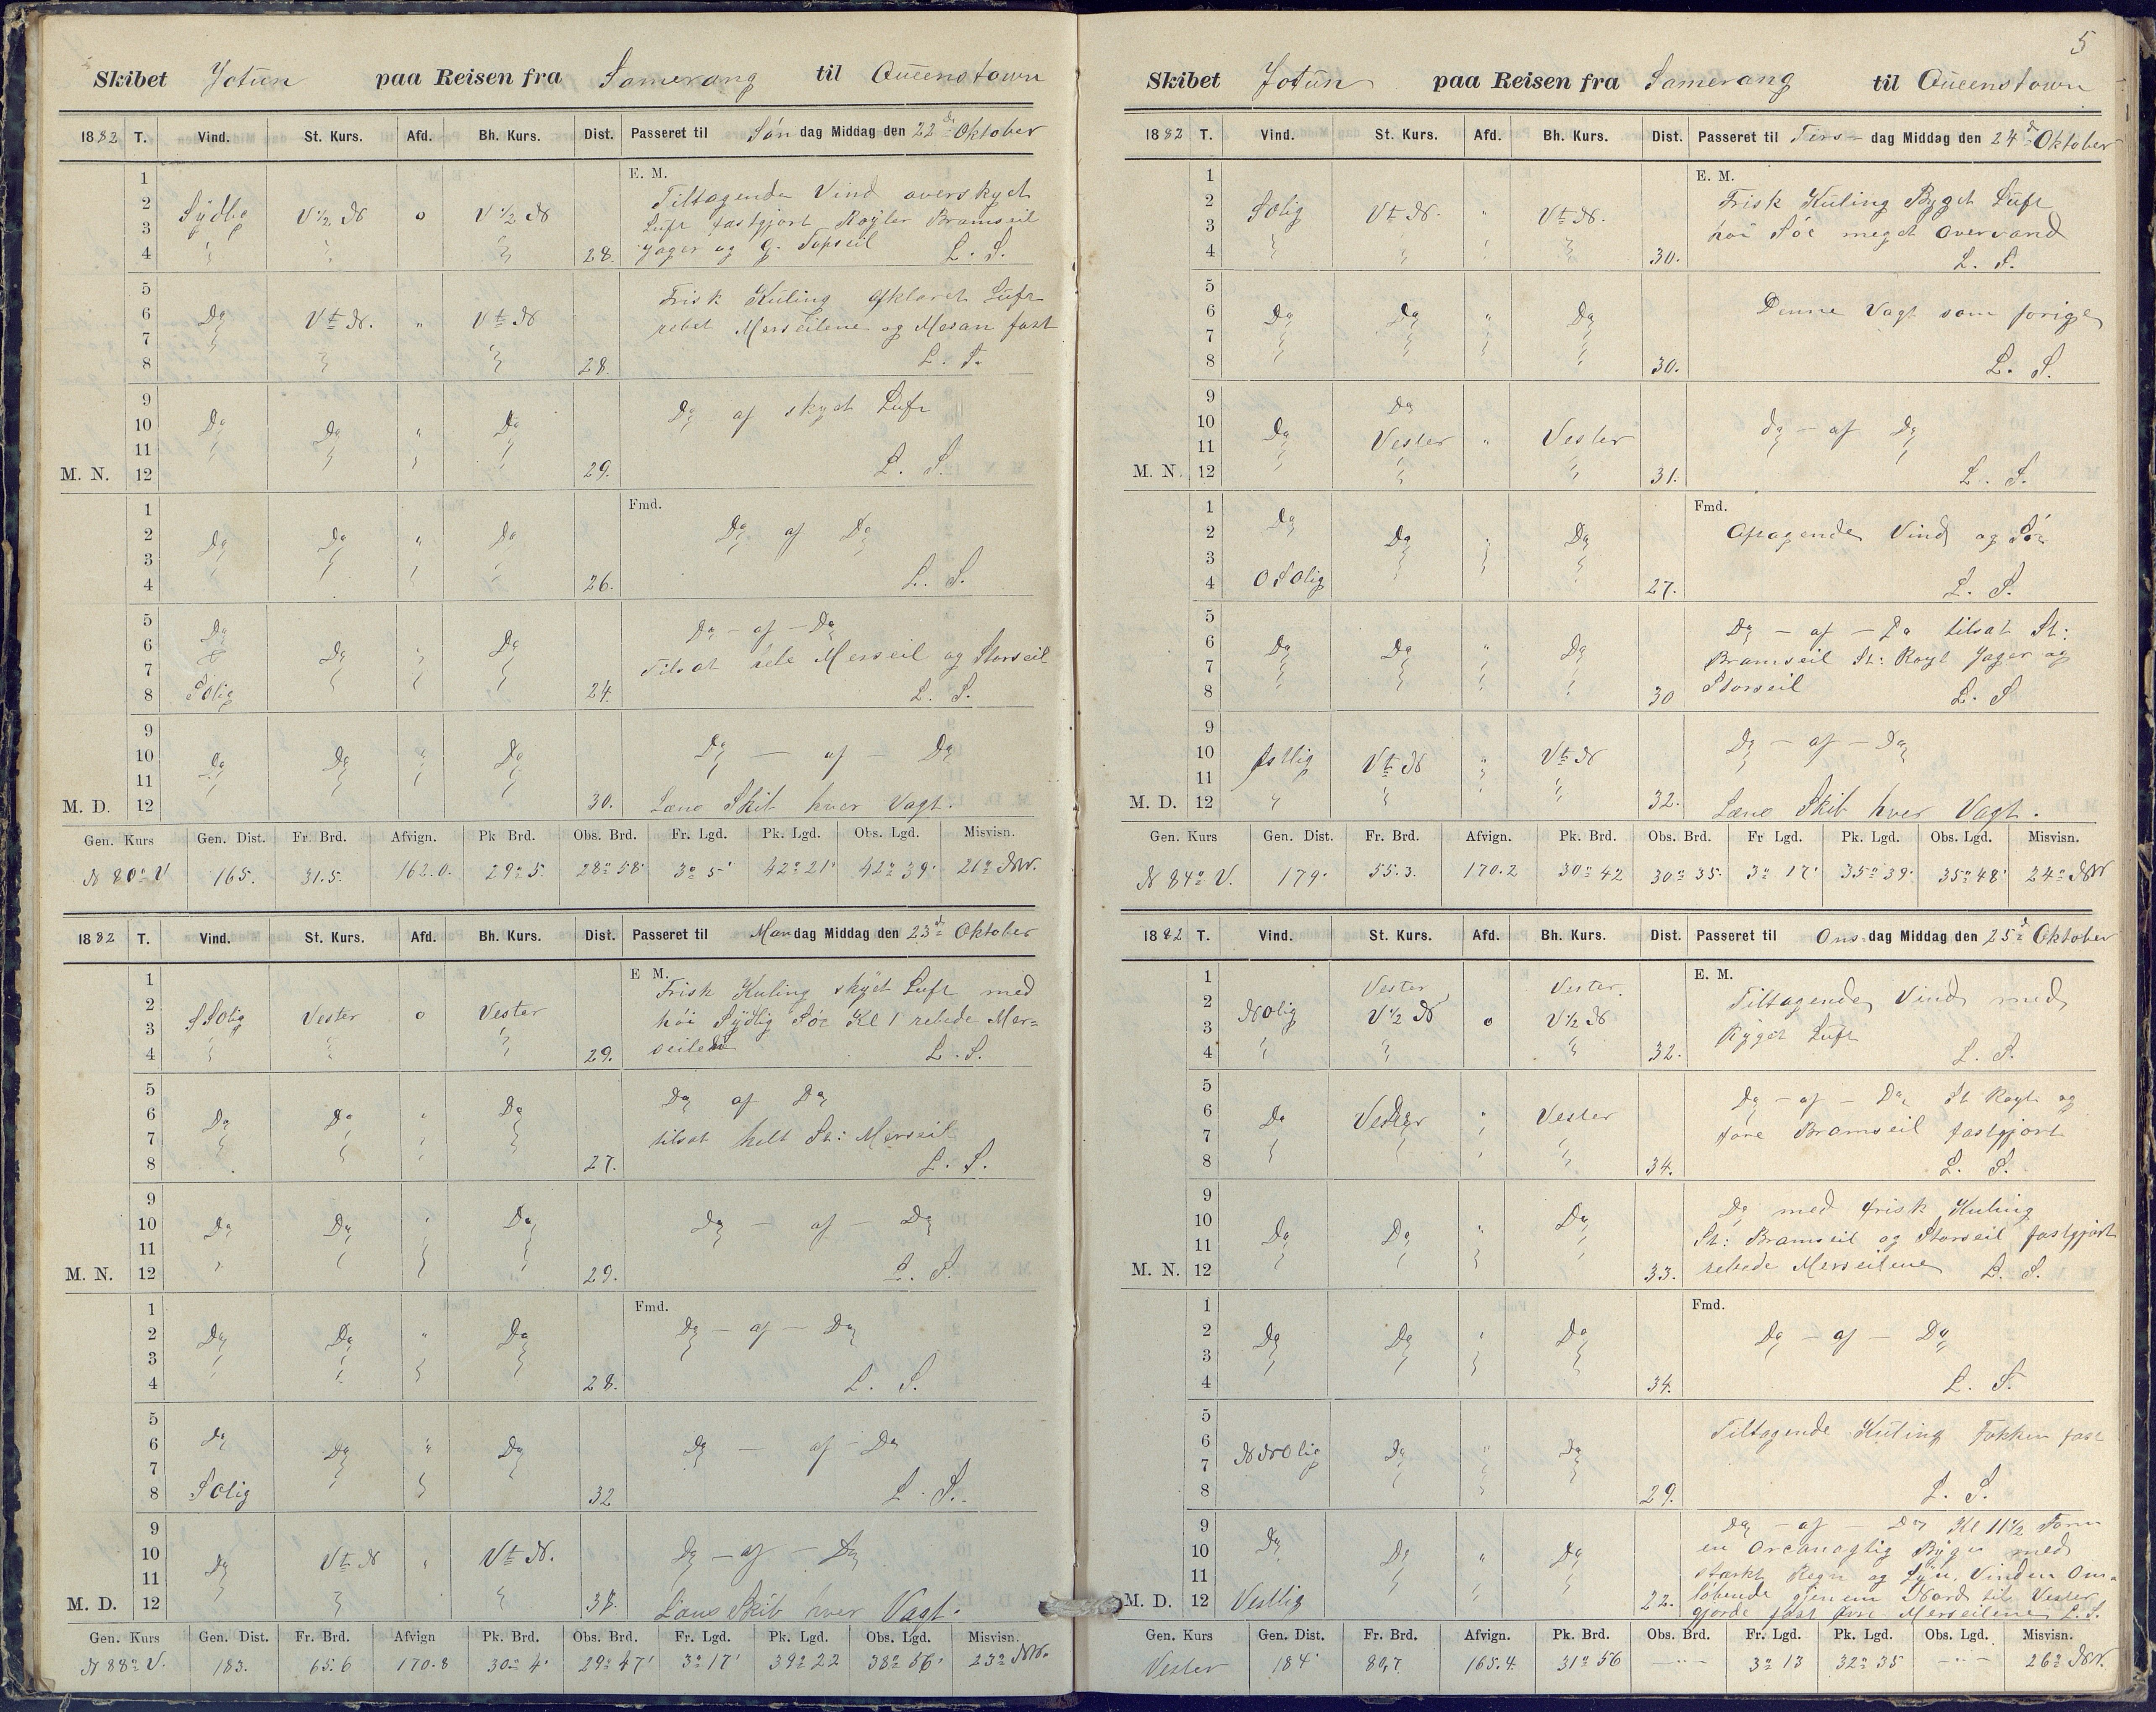 Skibet Jotun paa Reisen fra Samerang til Queenstown
1882 T. Vind. St. Kurs. Afd. Bh. Kurs. Dist. Passeret til Søn dag Middag den 22d Oktober
E. M.
1
2 Sydlig V ½ N o V ½ N Tiltagende Vind overskyet
3 Luft fastgjort Røyler Bramseil
4 " " " 28. Jager og G. Topseil L. S.
5 Frisk Kuling afklaret Luft
6 Do V t N. " V t N rebet Merseilene og Mesan fast
7
8 28. L. S.
9 Do af skyet Luft
10 Do Do " Do
11
M. N. 12 29. L. S.
Fmd.
1
2 Do Do " Do Do af Do
3
4 26. L. S.
5 Do Do - af - Do
6 Do " Do Tilsat hele Merseil og Storseil
7
8 SOlig 24. L. S.
9
10 Do Do " Do Do - af - Do
11
M. D. 12 30. Læns Skib hver Vagt.
Gen. Kurs Gen. Dist. Fr. Brd. Afvign. Pk Brd. Obs. Brd. Fr. Lgd. Pk. Lgd. Obs. Lgd. Misvisn.
N 80° V 165. 31.5. 162.0. 29° 5. 28° 58' 3° 5' 42° 21' 42° 39' 21° NW.
1882 T. Vind. St. Kurs. Afd. Bh. Kurs. Dist. Passeret til Man dag Middag den 23d Oktober
E M.
1 Frisk Kuling skyet Luft med
2 SSOlig Vester o Vester høi Sydlig Søe Kl 1 rebede Mer=
3
4 29. seilene L. S.
5 Do af Do
6 Do Do " Do
7 tilsat helt St: Merseil
8 27. L. S.
9
10 Do Do " Do Do - af - Do
11
M. N. 12 29. L. S.
Fmd.
1
2 Do Do " Do Do - af - Do
3
4 28. L. S.
5
6 Do Do " Do Do - af - Do
7
8 SOlig 32 L. S.
9
10 Do V t N " V t N. Do - af - Do
11
M. D. 12 38. Læns Skib hver Vagt.
Gen. Kurs Gen. Dist. Fr. Brd. Afvign Pk. Brd. Obs. Brd. Fr. Lgd. Pk. Lgd. Obs. Lgd. Misvisn.
N 88° V. 183. 65.6 170.8 30° 4' 29° 47' 3° 17' 39° 22 38° 56' 23° NW.
5
Skibet Jotun paa Reisen fra Samerang til Queenstown
1882 T. Vind. St. Kurs. Afd. Bh. Kurs. Dist. Passeret til Tirs- dag Middag den 24d Oktober
E. M.
1 Frisk Kuling Byget Luft
2 SOlig V t N. " V t N. høi Søe meget Overvand
3
4 30. L. S.
5
6 Do Do " Do Denne Vagt som forige
7
8 30. L. S.
9 Do
10 Do Vester " Vester do - af Do
11
M. N. 12 31. L. S.
Fmd.
1 Do
2 Do " Do Aftagende Vind og Søe
3
4 OSOlig 27. L. S.
5 Do - af - Do tilsat St:
6 Do Do " Do Bramseil St: Røyl Jager og
7
8 30 Storseil L. S.
9
10 Østlig V t N " V t N Do - af - Do
11
M. D. 12 32. Læns Skib hver Vagt.
Gen. Kurs Gen. Dist. Fr. Brd. Afvign. Pk. Brd. Obs. Brd. Fr Lgd. Pk. Lgd. Obs. Lgd. Misvisn.
N 84° V. 179. 55.3. 170.2 30° 42 30° 35. 3° 17' 35° 39' 35° 48' 24° NW
1882 T. Vind. St. Kurs. Afd. Bh. Kurs. Dist. Passeret til Ons- dag Middag den 25d Oktober
E. M.
1 Vester Vester Tiltagende Vind med
2 NOlig V ½ N o V ½ N
3 Byget Luft
4 32. L. S.
5 Do - af - Do St Røyl og
6 Do Vester " Vester
7 fore Bramseil fastgjort
8 34. L. S.
9 Do med frisk Kuling
10 Do Do " Do St: Bramseil og Storseil fastgjort
11
M. N. 12 33. rebede Merseilene L. S.
Fmd.
1
2 Do Do " Do Do - af - Do
3
4 34. L. S.
5 Tiltagende Kuling Fokken fast
6 NNOlig Do " Do
7
8 29. L. S.
9 Do - af - Do Kl 11½
10 Do Do " Do en Orcanagtig Byge med
11 stærkt Regn og Lyn, Vinden Om=
M. D. 12 Vestlig 22. løbende gjenem Nord til Vester
gjorde fast fore Merseilene L. S.
Gen. Kurs Gen. Dist. Fr. Brd. Afvign. Pk. Brd. Obs. Brd. Fr. Lgd. Pk. Lgd. Obs. Lgd. Misvisn.
Vester 184' 80,7 165.4. 31° 56 - " - 3° 13 32° 35 - " - 26° NW.